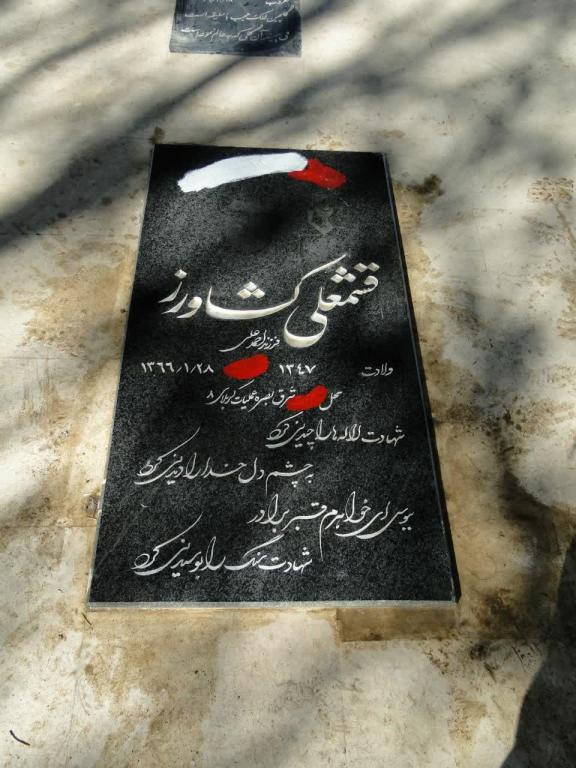 قسمعلی کشاورز
فرزند احمد علی
ولادت ۱۳۴۷ ۱۳۶۶/۱/۲۸
محل شرق بصره عملیات کربلای ۸
شهادت لاله ها را چیدنی کرد
چشم دل خدا را دیدنی کرد
ببوس ای خواهرم قبر برادر
شهادت سنگ را بوسیدنی کرد